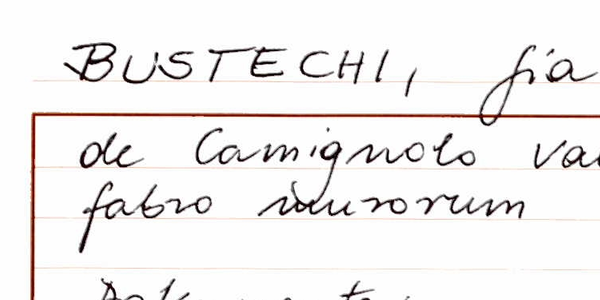 BUSTECHI, fia
de Camignolo val
fabro murorum